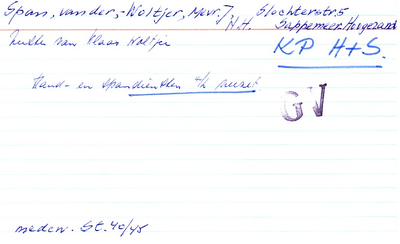 Spass, van der, - Woltjer, Mevr. J, Slochterstr. 5
N.H. Sappemeer-Hoogezand
van Klaas Woltjer KP H+S.
Hand- en spandiensten verzet
GV
medew. St. 40/45